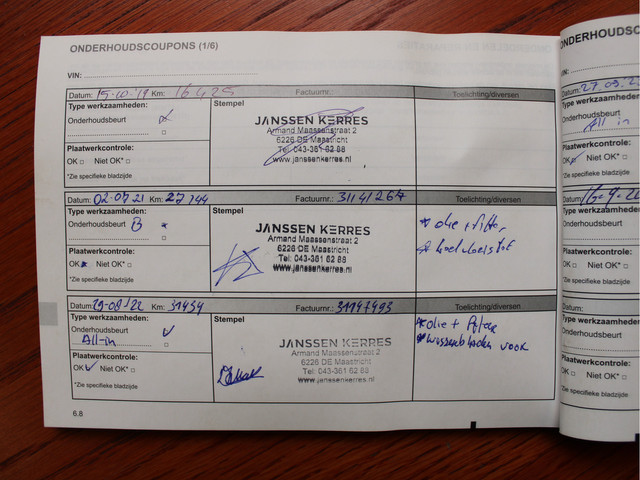 ONDERHOUDSCOUPONS (1/6)
VIN:
Datum: 15-10-'19 Km: 16425 Factuurnr.: Toelichting/diversen
Type werkzaamheden: Stempel
Onderhoudsbeurt
Plaatwerkcontrole:
OK □ Niet OK* □
*Zie specifieke bladzijde
JANSSEN KERRES
Armand Maassenstraat 2
6226 DE Maastricht
Tel: 043-361 62 88
www.janssenkerres.nl
Datum: 02-07-21 Km: 27744 Factuurnr.: 31141267 Toelichting/diversen
Type werkzaamheden: Stempel
Onderhoudsbeurt B
Plaatwerkcontrole:
OK Niet OK* □
*Zie specifieke bladzijde
JANSSEN KERRES
Armand Maassenstraat 2
6226 DE Maastricht
Tel: 043-361 62 88
www.janssenkerres.nl
* olie + filter
* koelvloeistof
Datum: 29-08-'22 Km: 31434 Factuurnr.: 31147493 Toelichting/diversen
Type werkzaamheden: Stempel
Onderhoudsbeurt
All-in
Plaatwerkcontrole:
OK Niet OK* □
*Zie specifieke bladzijde
JANSSEN KERRES
Armand Maassenstraat 2
6226 DE Maastricht
Tel: 043-361 62 88
www.janssenkerres.nl
* olie + filter
* wisserbladen voor
6.8
ONDERHOUDSC
VIN:
Datum:
Type werkzaamheden:
Onderhoudsbeurt
All in
Plaatwerkcontrole:
OK Niet OK*
*Zie specifieke bladz
Datum: 16-9-2
Type werkzaamh
Onderhoudsbeurt
Plaatwerkcontro
OK □ Niet OK*
*Zie specifieke blad
Datum:
Type werkzaam
Onderhoudsbeurt
Plaatwerkcontr
OK □ Niet O
*Zie specifieke bl